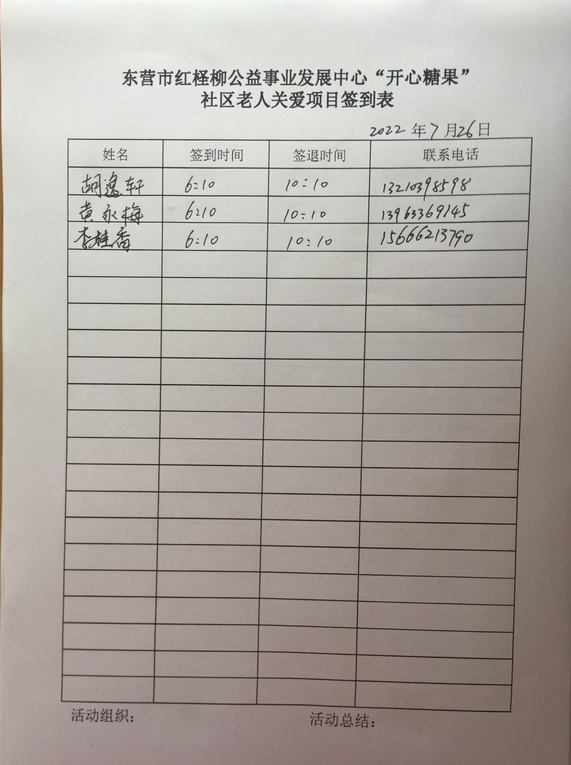 东营市红柽柳公益事业发展中心“开心糖果”
社区老人关爱项目签到表
2022年7月26日
姓名 签到时间 签退时间 联系电话
胡逸轩 6:10 10:10 13210398598
黄永梅 6:10 10:10 13963369145
李桂香 6:10 10:10 15666213790
活动组织： 活动总结：